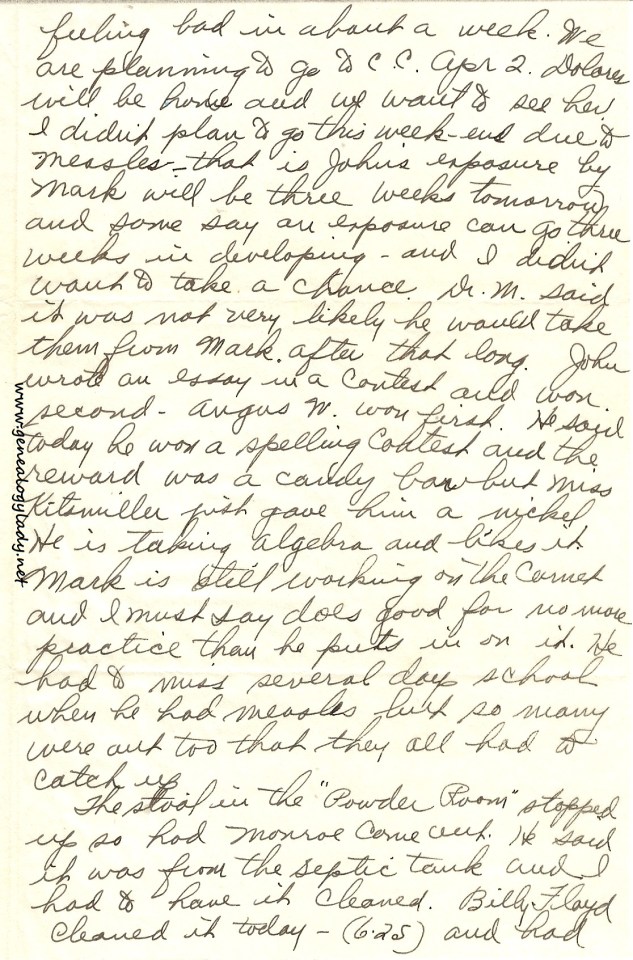 feeling bad in about a week. We
are planning to go to C.C. Apr 2. Dolores
will be home and we want to see her.
I didn't plan to go this week-end due to
measles - that is John's exposure by
Mark will be three weeks tomorrow
and some say an exposure can go three
weeks in developing - and I didn't
want to take a chance. Dr. M. said
it was not very likely he would take
them from Mark after that long. John
wrote an essay in a contest and won
second - Angus W. won first. He said
today he won a spelling contest and the
reward was a candy bar but Miss
Kitsmiller just gave him a nickel
He is taking algebra and likes it.
Mark is still working on the Cornet
and I must say does good for no more
practice than he puts in on it. He
had to miss several day school
when he had measles but so many
were out too that they all had to
catch up
The stool in the "Powder Room" stopped
up so had Monroe come out. He said
it was from the septic tank and I
had to have it cleaned. Billy Floyd
cleaned it today - (6.25) and had
www.genealogylady.net